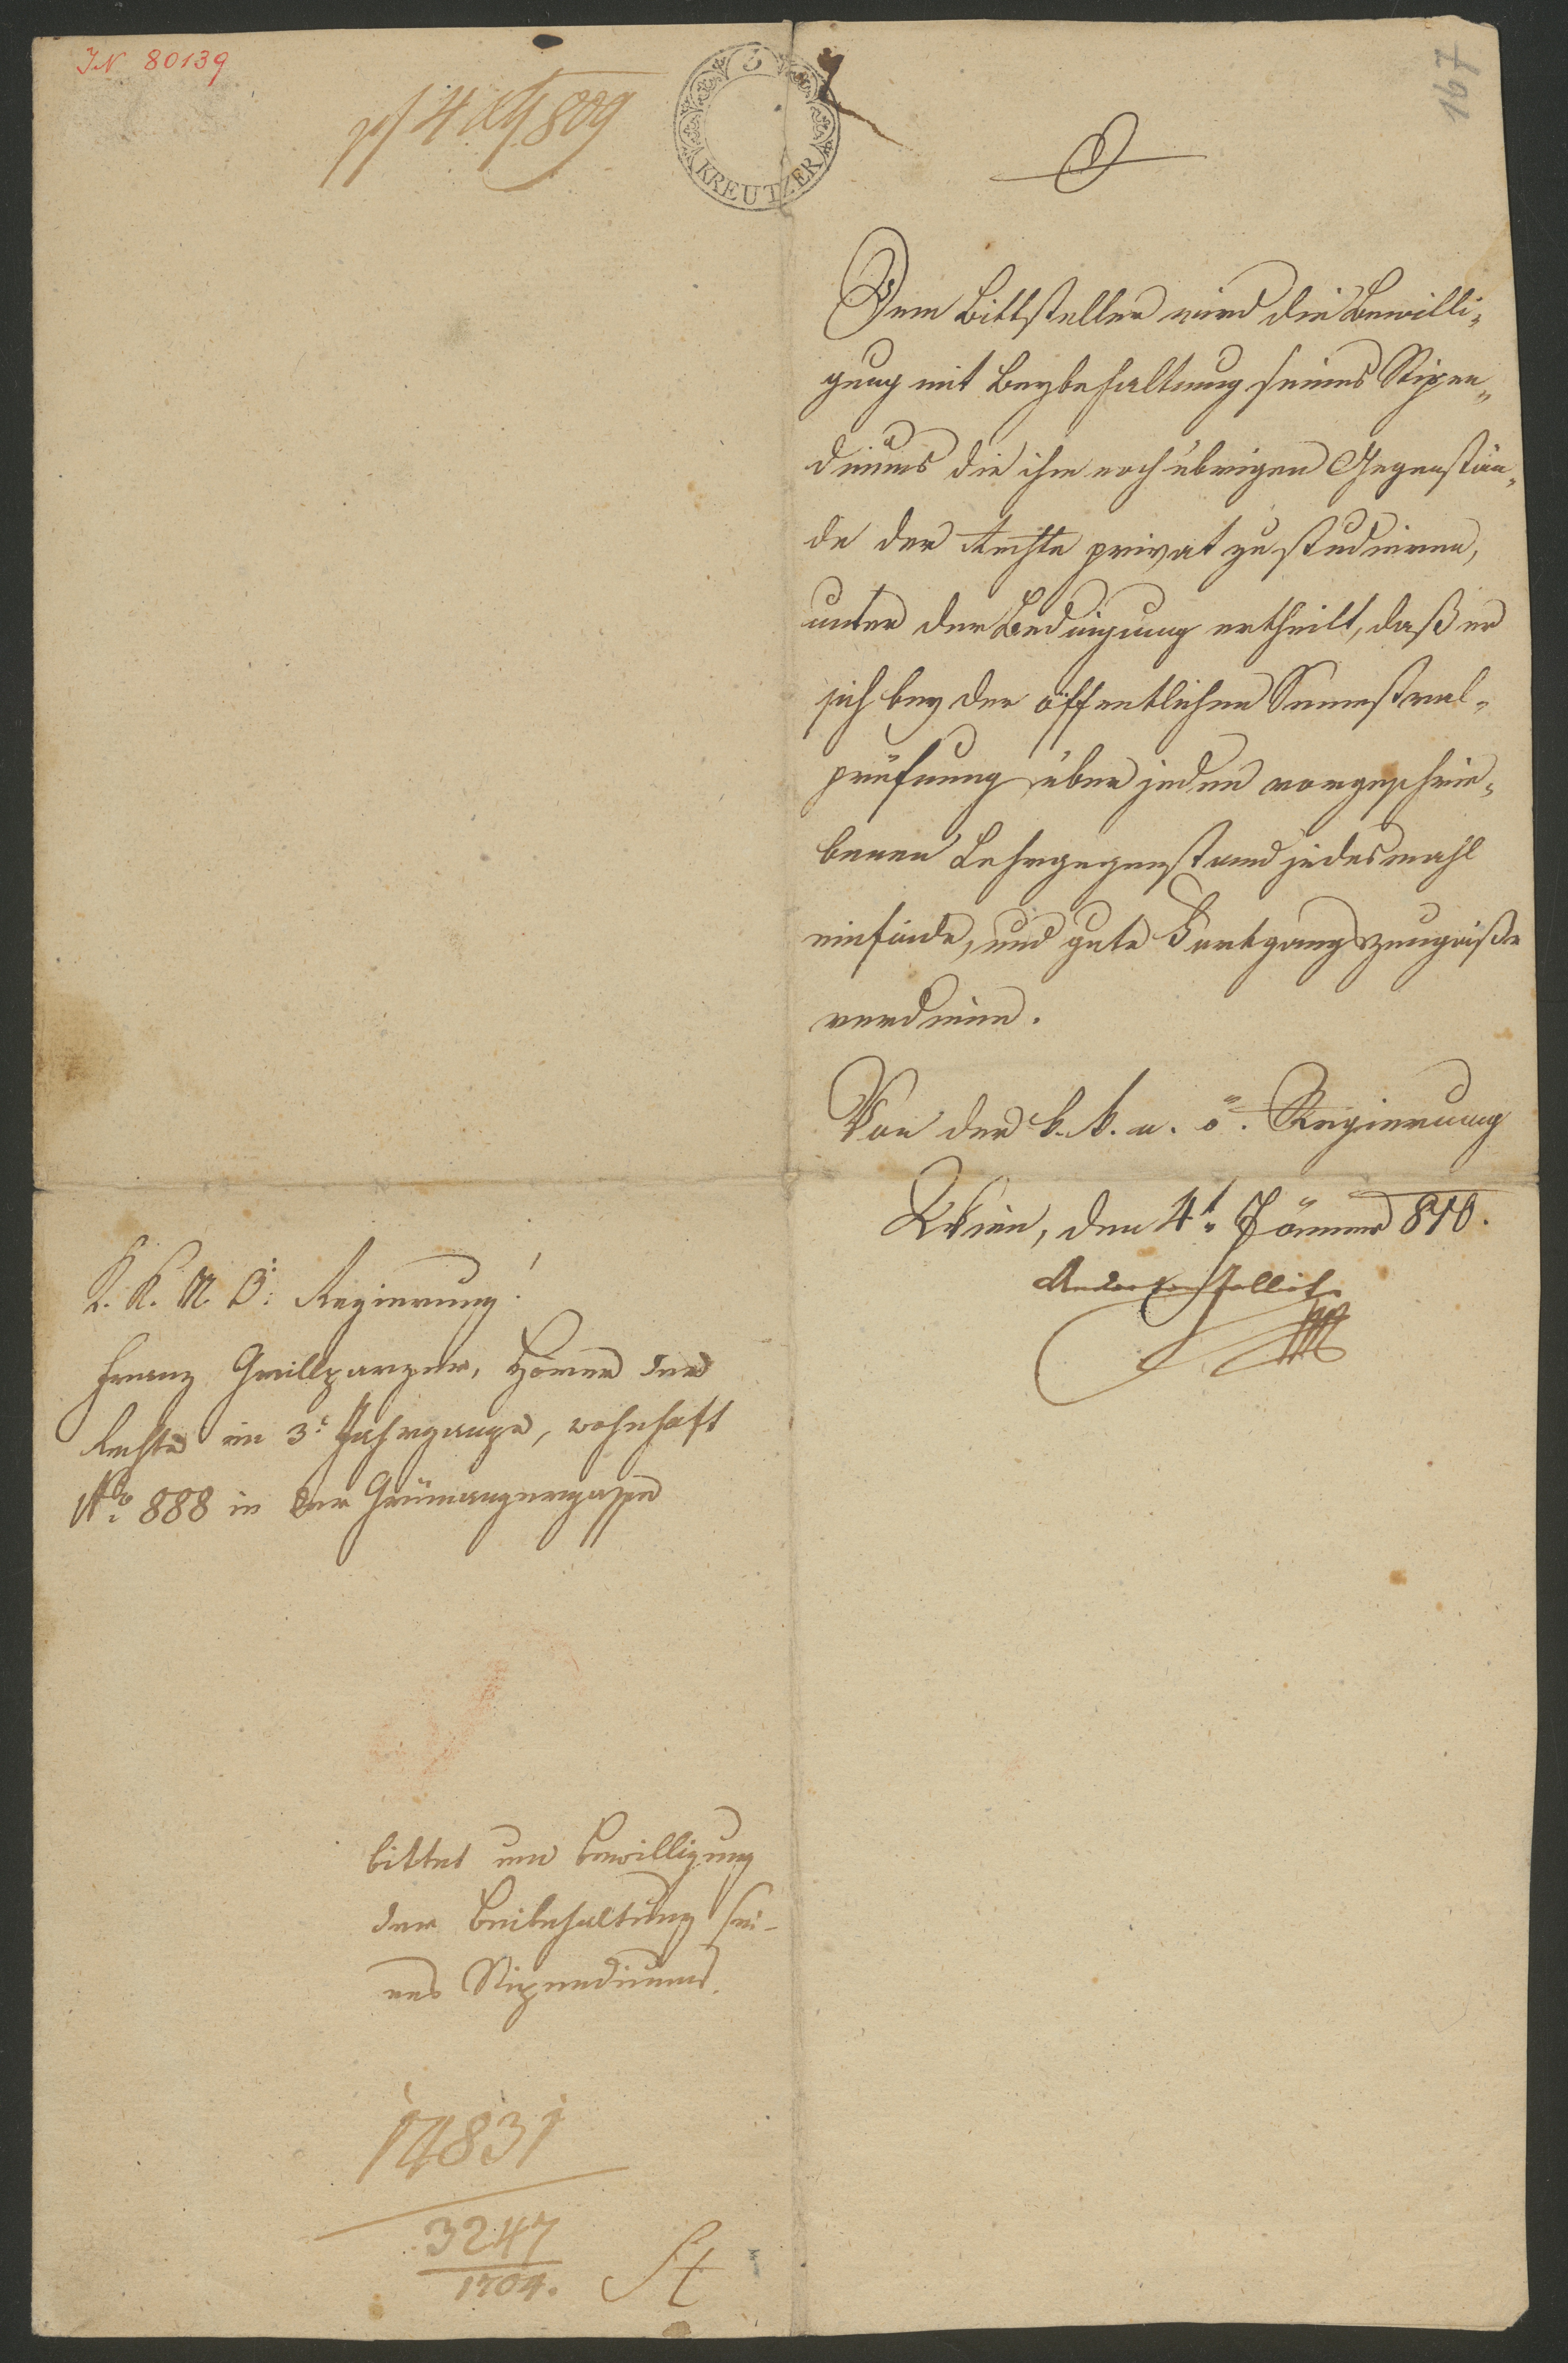 IN 80139
809
3
KREUTZER
167
Dem Bittsteller wird die Bewilli„
gung mit Beybehaltung seines Stipen„
diums die ihm noch übrigen Gegenstän„
de der Rechte privat zu studieren,
unter der Bedingung ertheilt, daß er
sich bey der öffentlichen Semestral„
prüfung über jeden vorgeschrie„
benen Lehrgegenstand jedesmahl
einfinde, und gute Fortgangszeugniße
verdiene.
Von der k. k. n. ö. Regierung
Wien, den 4t. Jänner 810.
K. K. N. Ö: Regierung!
Franz Grillparzer, Hörer der
Rechte im 3t Jahrgange, wohnhaft
No 888 in der Grünangergasse
bittet um Bewilligung
der Beibehaltung sei-
nes Stipendiums.
14831
3247
1704.